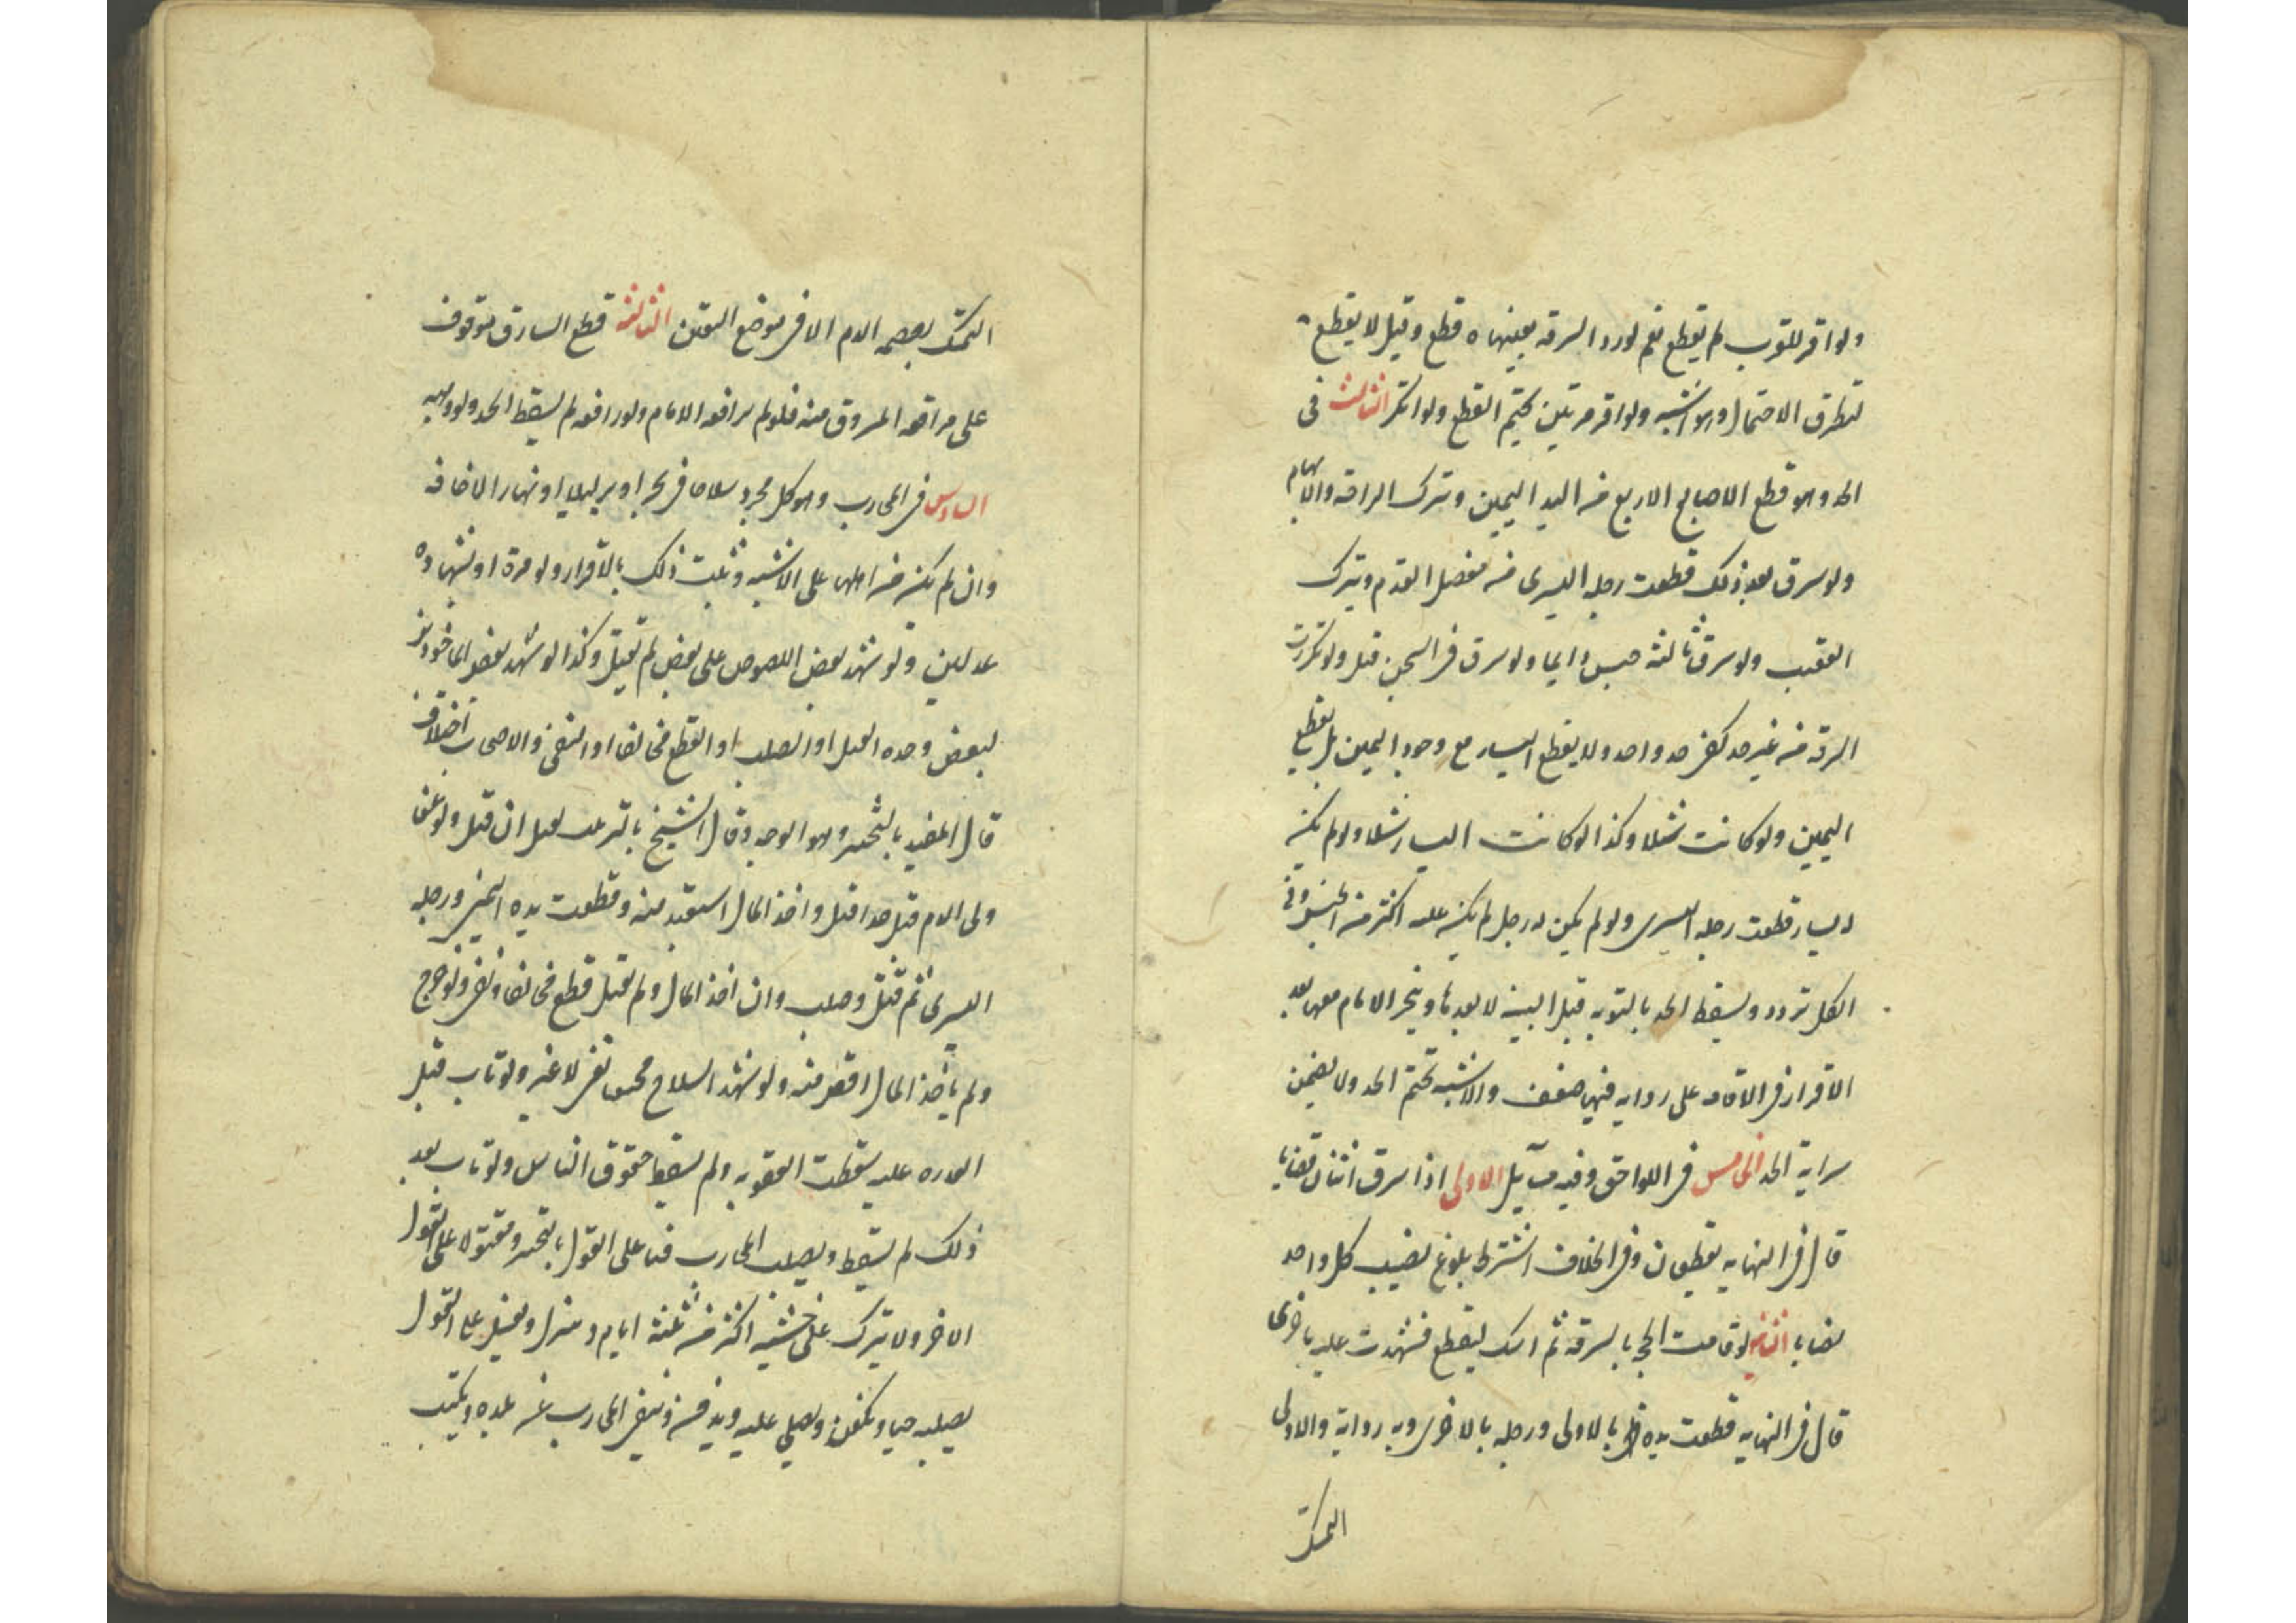 ولو اقر للتوب لم يقطع نعم لو رد السرقه بعينها ه قطع وقيل لا يقطع
لتطرق الاحتمال وهو اشبه ولو اقر مرتين تحتم القطع ولو انكر الثالث فى
الحد وهو قطع الاصابع الاربع من اليد اليمين وتترك الراحه والابهام
ولو سرق بعد ذلك قطعت رجله اليسرى من مفصل القدم ويترك
العقب ولو سرق ثالثه حبس دايما ولو سرق فى السجن قتل ولو تكررت
السرقه من غير حد كفى حد واحد ولا يقطع اليسار مع وجود اليمين بل يقطع
اليمين ولو كانت شلا وكذا لو كانت اليسار شلا ولو لم يكن
له يسار قطعت رجله اليسرى ولو لم يكن له رجل لم يكن عليه اكثر من الحبس وفى
الكل تردد ويسقط الحد بالتوبه قبل البينه لا بعدها ويتخير الامام معها بعد
الاقرار فى الاقامه على روايه فيها ضعف والاشبه تحتم الحد ولا يضمن
سراية الحد الخامس فى اللواحق وفيه مسايل الاولى اذا سرق اثنان نصابا
قال فى النهايه يقطعان وفى الخلاف اشترط بلوغ نصيب كل واحد
نصابا الثانيه لو قامت الحجه بالسرقه ثم امسك ليقطع فشهدت عليه باخرى
قال فى النهايه قطعت يده بالاولى ورجله بالاخرى وبه رواية والاولى
التمسك
التمسك بعصمه الدم الا فى موضع اليقين الثالثه قطع السارق موقوف
على مرافعه المسروق منه فلو لم يرافعه الامام ولو رافعه لم يسقط الحد ولو وهبه
السادس فى المحارب وهو كل مجرد سلاحا فى بحر او بر ليلا او نهارا لاخافه
وان لم يكن من اهلها على الاشبه وثبت ذلك بالاقرار ولو مرة او شهاده
عدلين ولو شهد بعض اللصوص على بعض لم تقبل وكذا لو شهد بعض الماخوذين
لبعض وحده القتل او الصلب او القطع مخالفا او النفى وللاصحاب اختلاف
قال المفيد بالتخيير وهو الوجه وقال الشيخ بالترتيب يقتل ان قتل ولو عفى
ولى الدم قتل حدا قتل واخذ المال استعيد منه وقطعت يده اليمنى ورجله
اليسرى ثم قتل وصلب وان اخذ المال ولم يقتل قطع مخالفا ونفى ولو جرح
ولم ياخذ المال اقتص منه ولو شهر السلاح مخيفا نفى لا غير ولو تاب قبل
القدره عليه سقطت العقوبه ولم يسقط حقوق الناس ولو تاب بعد
ذلك لم يسقط ويصلب المحارب حيا على القول بالتخيير ومقتولا على القول
الاخر ولا يترك على خشبته اكثر من ثلثة ايام وينزل ويغسل على القول
بصلبه حيا ويكفن ويصلى عليه ويدفن وينفى المحارب عن بلده ويكتب